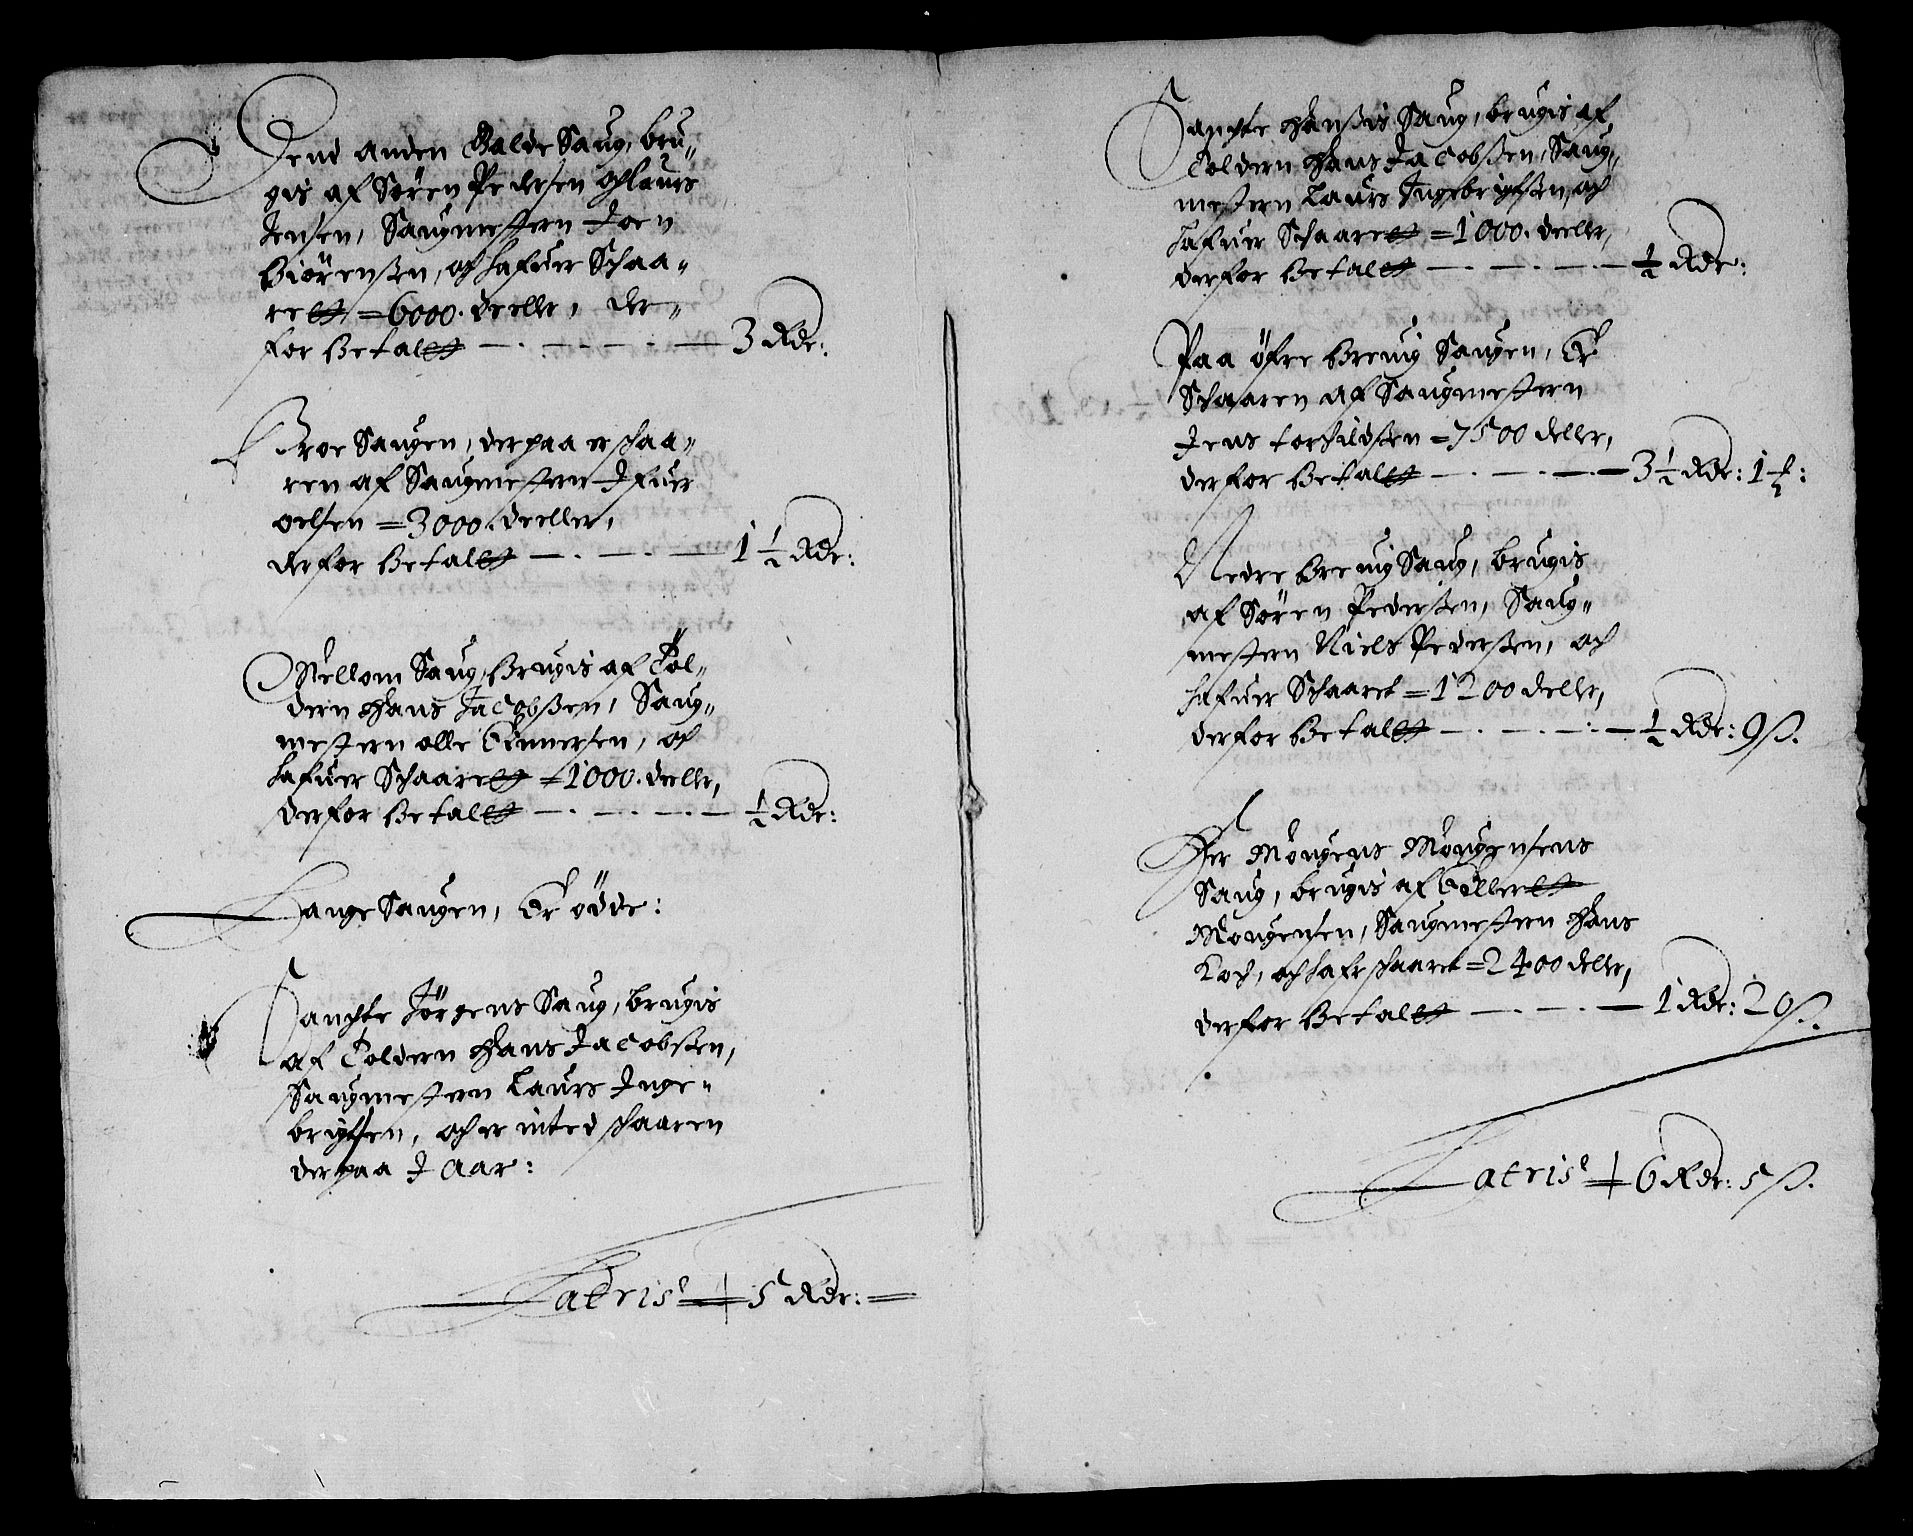 Dend anden Galde Saug, bru-
gis af Søren Pedersen och Laurs
Jensen, Saugmestern Joen
Biörenßen, och hafuer Schaa-
rett = 6000. deeller, der-
for Betalt — · — · — 3 Rdr:
Broe Saugen, der paa er schaa-
ren af Saugmestern Ifuer
Oelsen = 3000. deeller,
derfor Betalt — · — · — 1 ½ Rdr:
Mellom Saug, Brugis af Tol-
dern Hans Jacobßen, Saug-
mestern olle Gunnersen, och
hafuer Schaarett = 1000. deeller,
derfor Betalt — · — · — ½ Rdr:
Lange Saugen, Er ödde:
Sanchte Jörgens Saug, brugis
af Toldern Hans Jacobßen,
Saugmestern Laurs Inge-
brigtsen, och er inted schaaren
der paa J Aar:
Latris 5 Rdr: =
Sanchte Hanßis Saug, brugis af
Toldern Hans Jacobßen, Saug-
mestern Laurs Ingebrigtßen, och
hafuer Schaarett = 1000. deeller,
derfor Betalt — · — · — ½ Rdr:
Paa öfre Breuig Saugen, Er
Schaaren af Saugmestern
Jens torchildßen = 7500 deller,
derfor Betalt — · — · — 3 ½ Rdr: 1 ort:
Nedre Breuig Saug, brugis
af Sören Pederßen, Saug-
mestern Niels Pederßen, och
hafuer Schaaret = 1200 deller,
derfor Betalt — · — · — ½ Rdr: 9 ß.
Her Mougens Mougensens
Saug, brugis af Gullerett
Mougensen, Saugmestern Hans
Koch, och hafr schaaret = 2400 deller,
derfor Betalt — · — · — 1 Rdr: 20 ß.
Latris 6 Rdr: 5 ß.